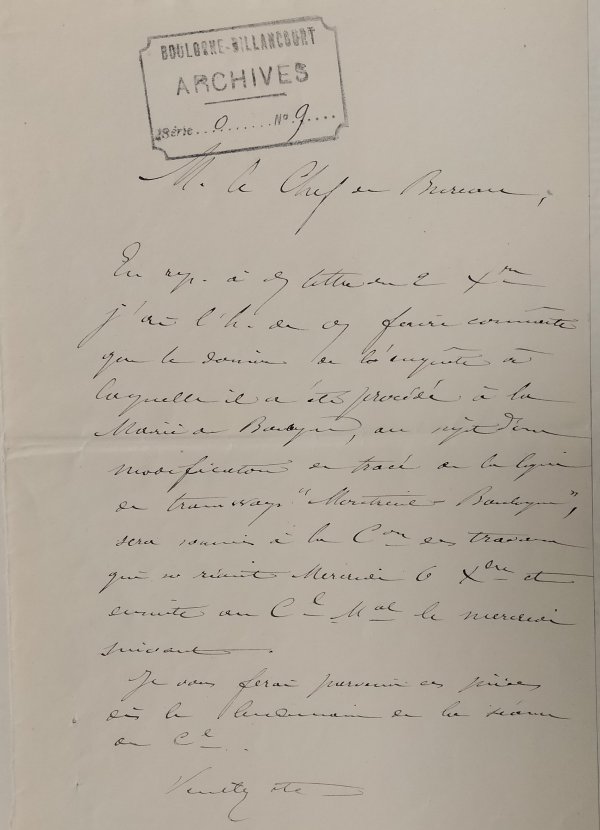 BOULOGNE-BILLANCOURT
ARCHIVES
Série..O.......N°.9....
M. le Chef de Bureau,
En rép. à v/ lettre du 2 Xbre
j'ai l'h. de v/ faire connaître
que le dossier de l'enquête à
laquelle il a été procédé à la
Mairie de Boulogne, au sujet d'une
modification du tracé de la ligne
de tramways "Montreuil - Boulogne",
sera soumis à la Con des travaux
qui se réunit Mercredi 6 Xbre et
ensuite au Cl Mal le mercredi
suivant.
Je vous ferai parvenir ces pièces
dès le lendemain de la séance
du Cl.
Veuillez etc